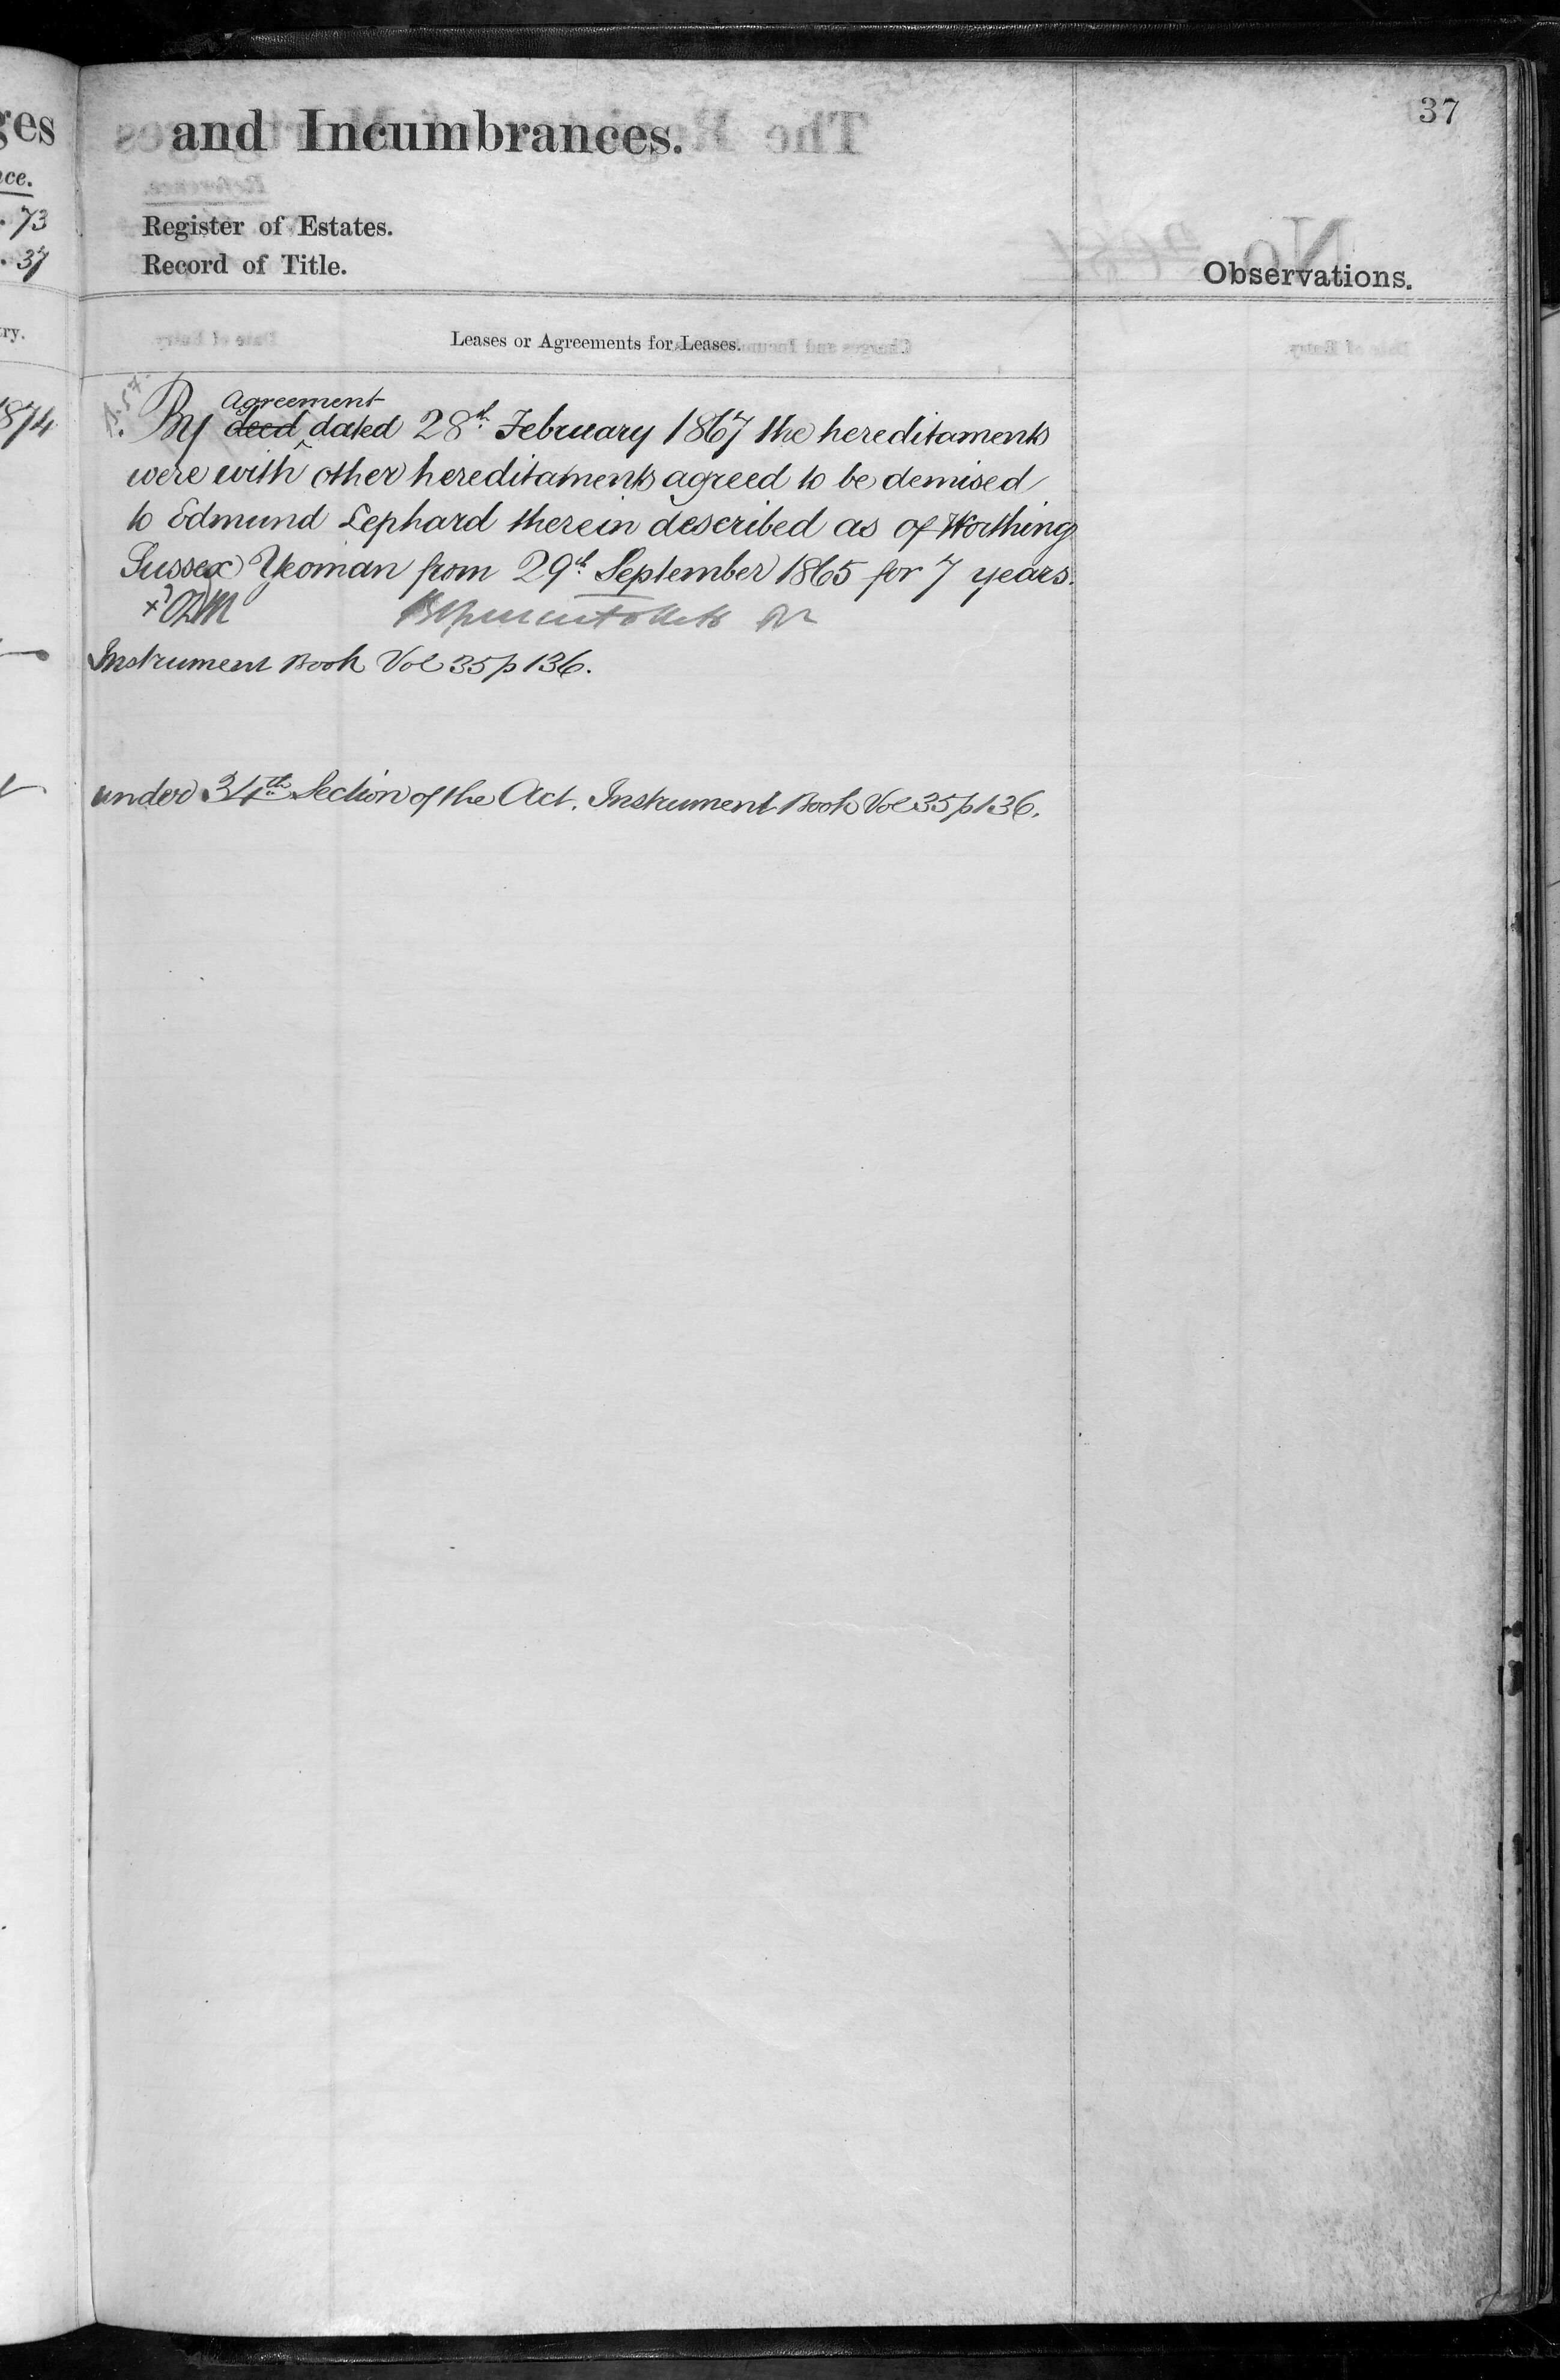 37
and Incumbrances.
Register of Estates.
Record of Title.
Observations.
Leases or Agreements for Leases.
Agreement
By deed dated 28th February 1867 the hereditaments
were with other hereditaments agreed to be demised
to Edmund Lephard therein described as of Worthing
Sussex Yeoman from 29th September 1865 for 7 years.
Instrument Book Vol 35 p 136.
under 34th Section of the Act. Instrument Book Vol 35 p 136.
ges
ce.
73
37
ry.
1874